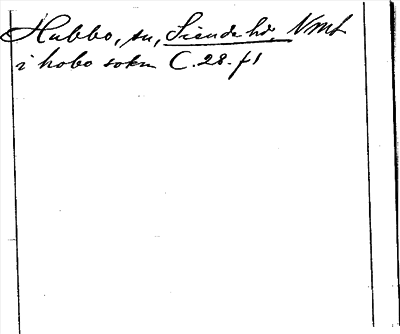 Hubbo, sn, Siende hd, Vml
i hobo sokn C.28.f1